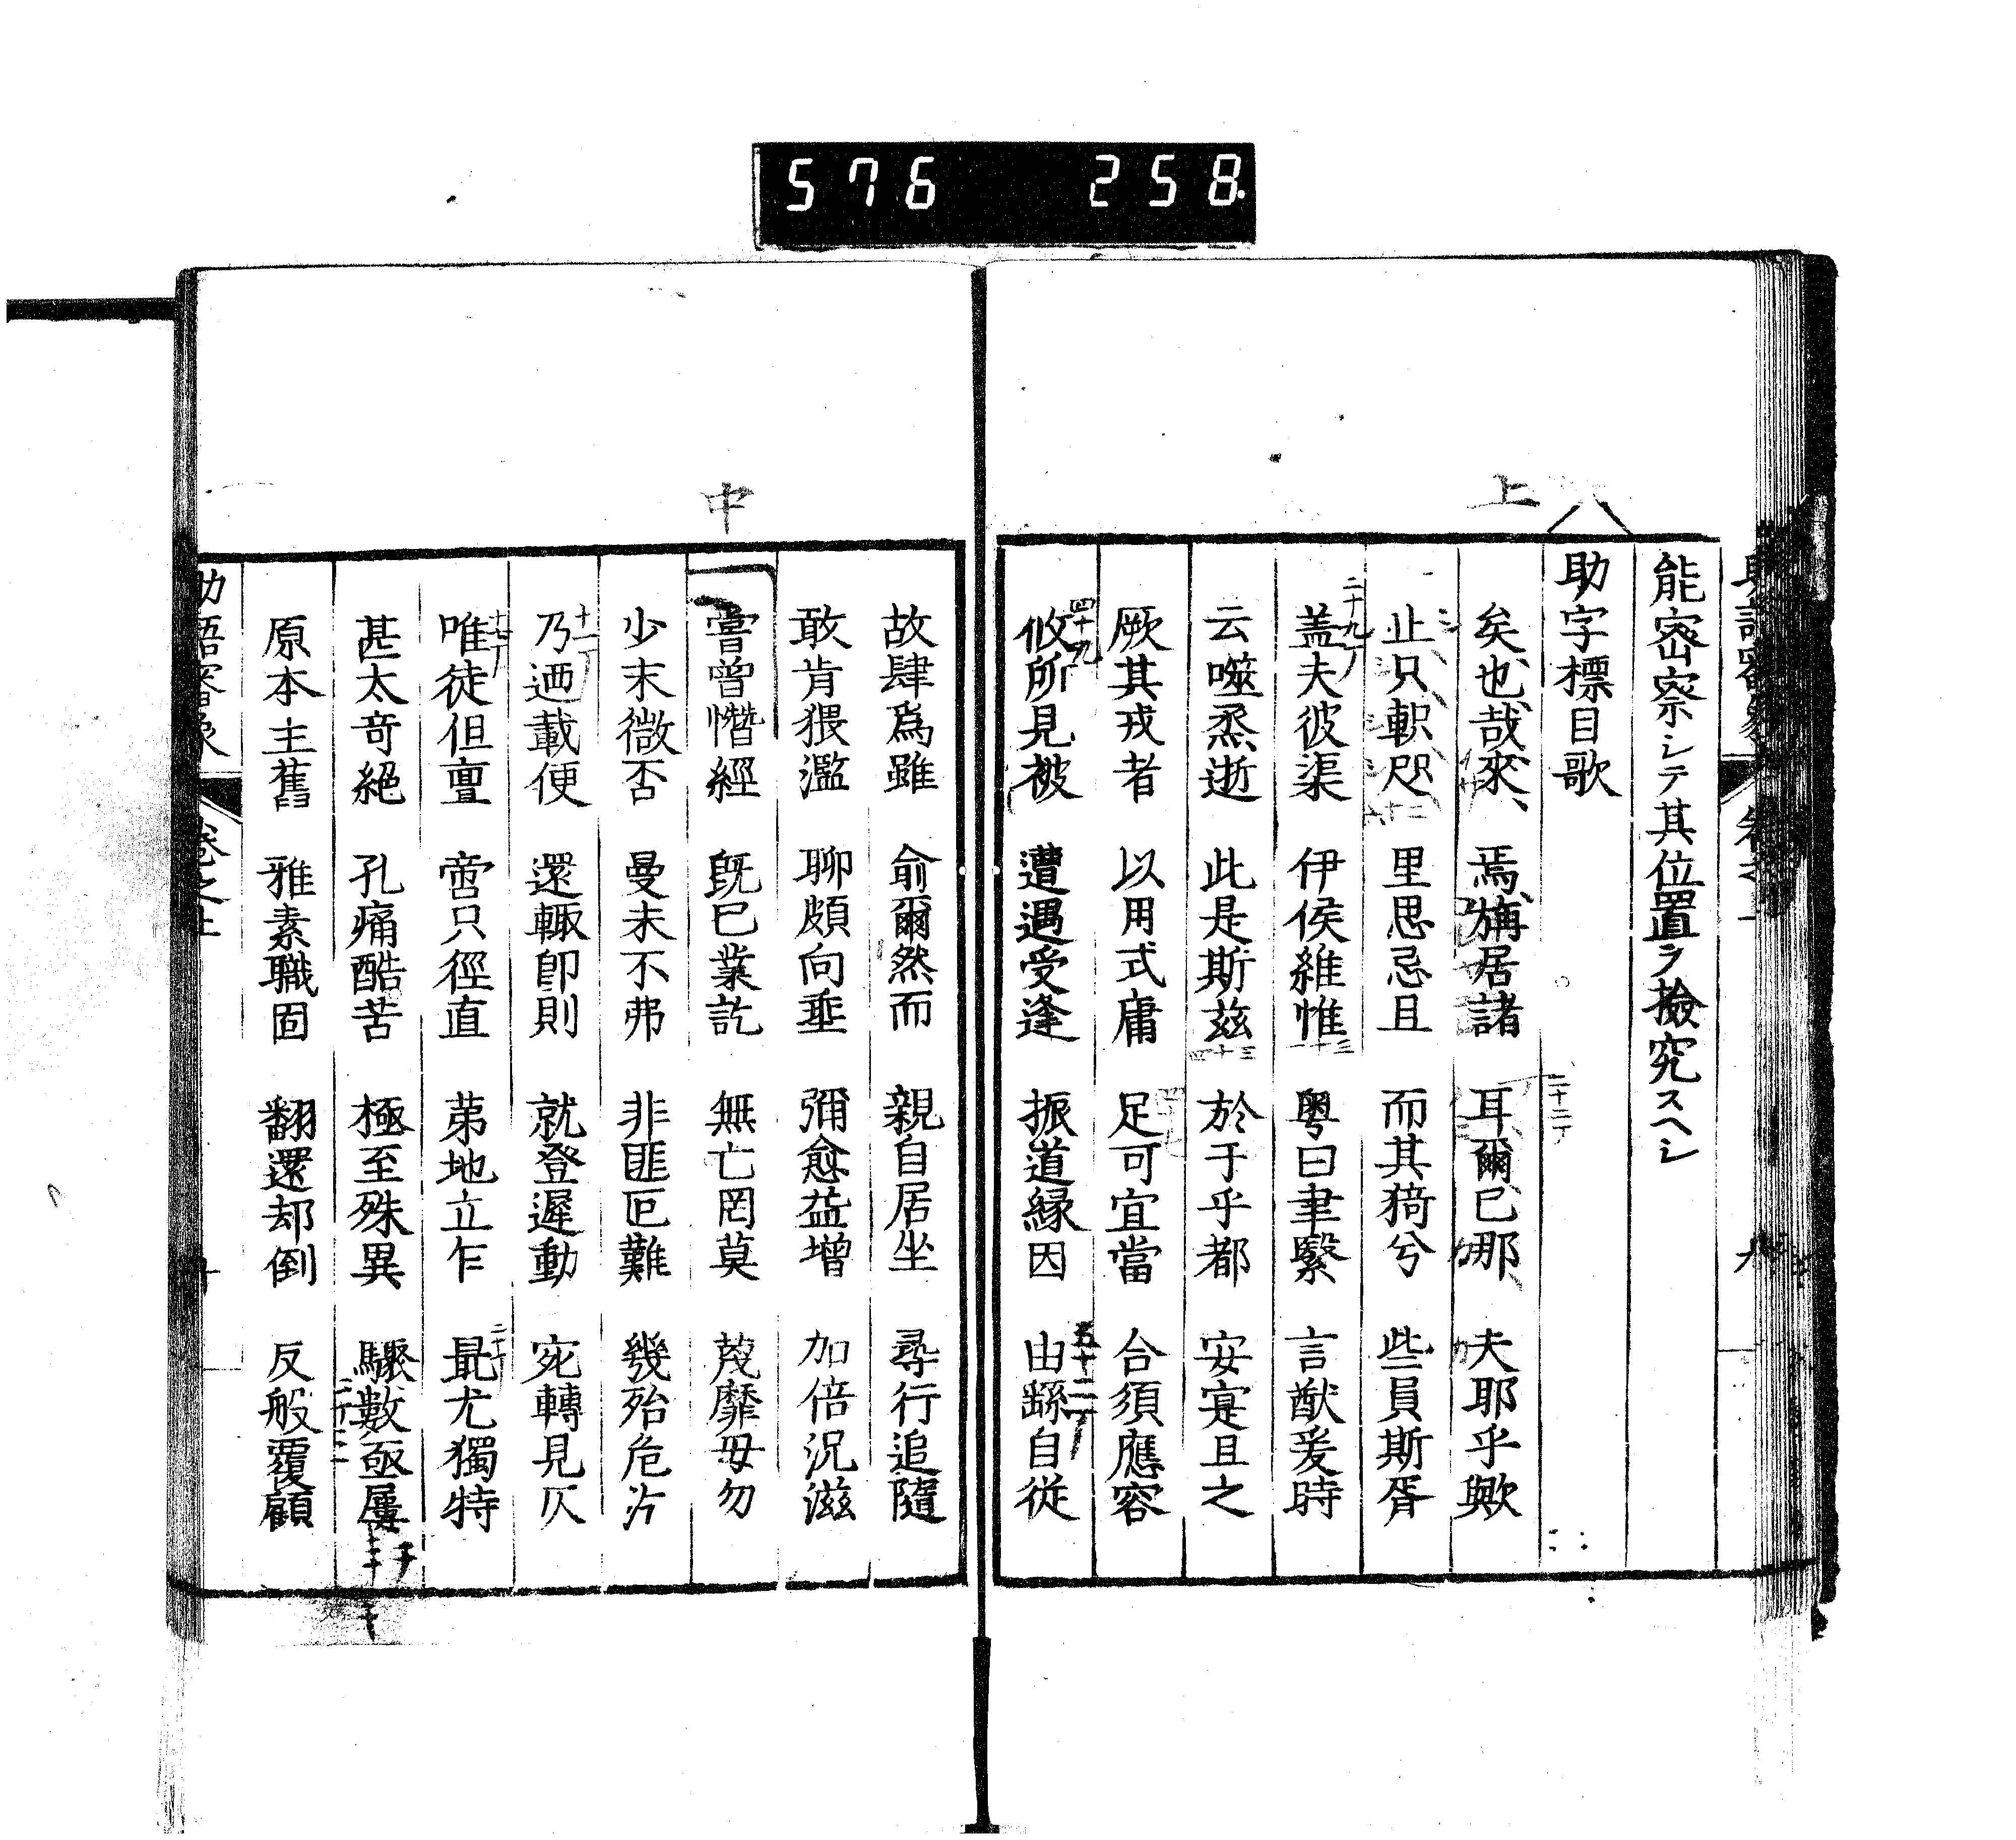 576 258
上
能宻察シテ其位置ヲ撿究スヘシ
助字標目歌
矣也哉來 焉旃居諸 耳爾已那 夫耶乎歟
止只軹咫 里思忌且 而其猗兮 些員斯胥
二十九丁
盖夫彼渠 伊侯維惟 粤曰聿繄 言猷爰時
云噬烝逝 此是斯茲 於于乎都 安寔且之
厥其戎者 以用式庸 足可宜當 合須應容
四十九
攸所見被 遭遇受逢 振道縁因 由繇自從
五十二丁
中
故肆爲雖 俞爾然而 親自居坐 尋行追隨
敢肯猥濫 聊頗向垂 彌愈益增 加倍况滋
嘗曾憯經 既已業訖 無亡罔莫 蔑靡毋勿
少末微否 曼未不弗 非匪叵難 幾殆危
十一丁
乃迺載便 還輙卽則 就登遲動 宛轉見仄
唯徒但亶 啻只徑直 苐地立乍 最尤獨特
二十丁
甚太奇絕 孔痛酷苦 極至殊異 驟數亟屢
原本主舊 雅素職固 翻還却倒 反般覆顧
卷之上